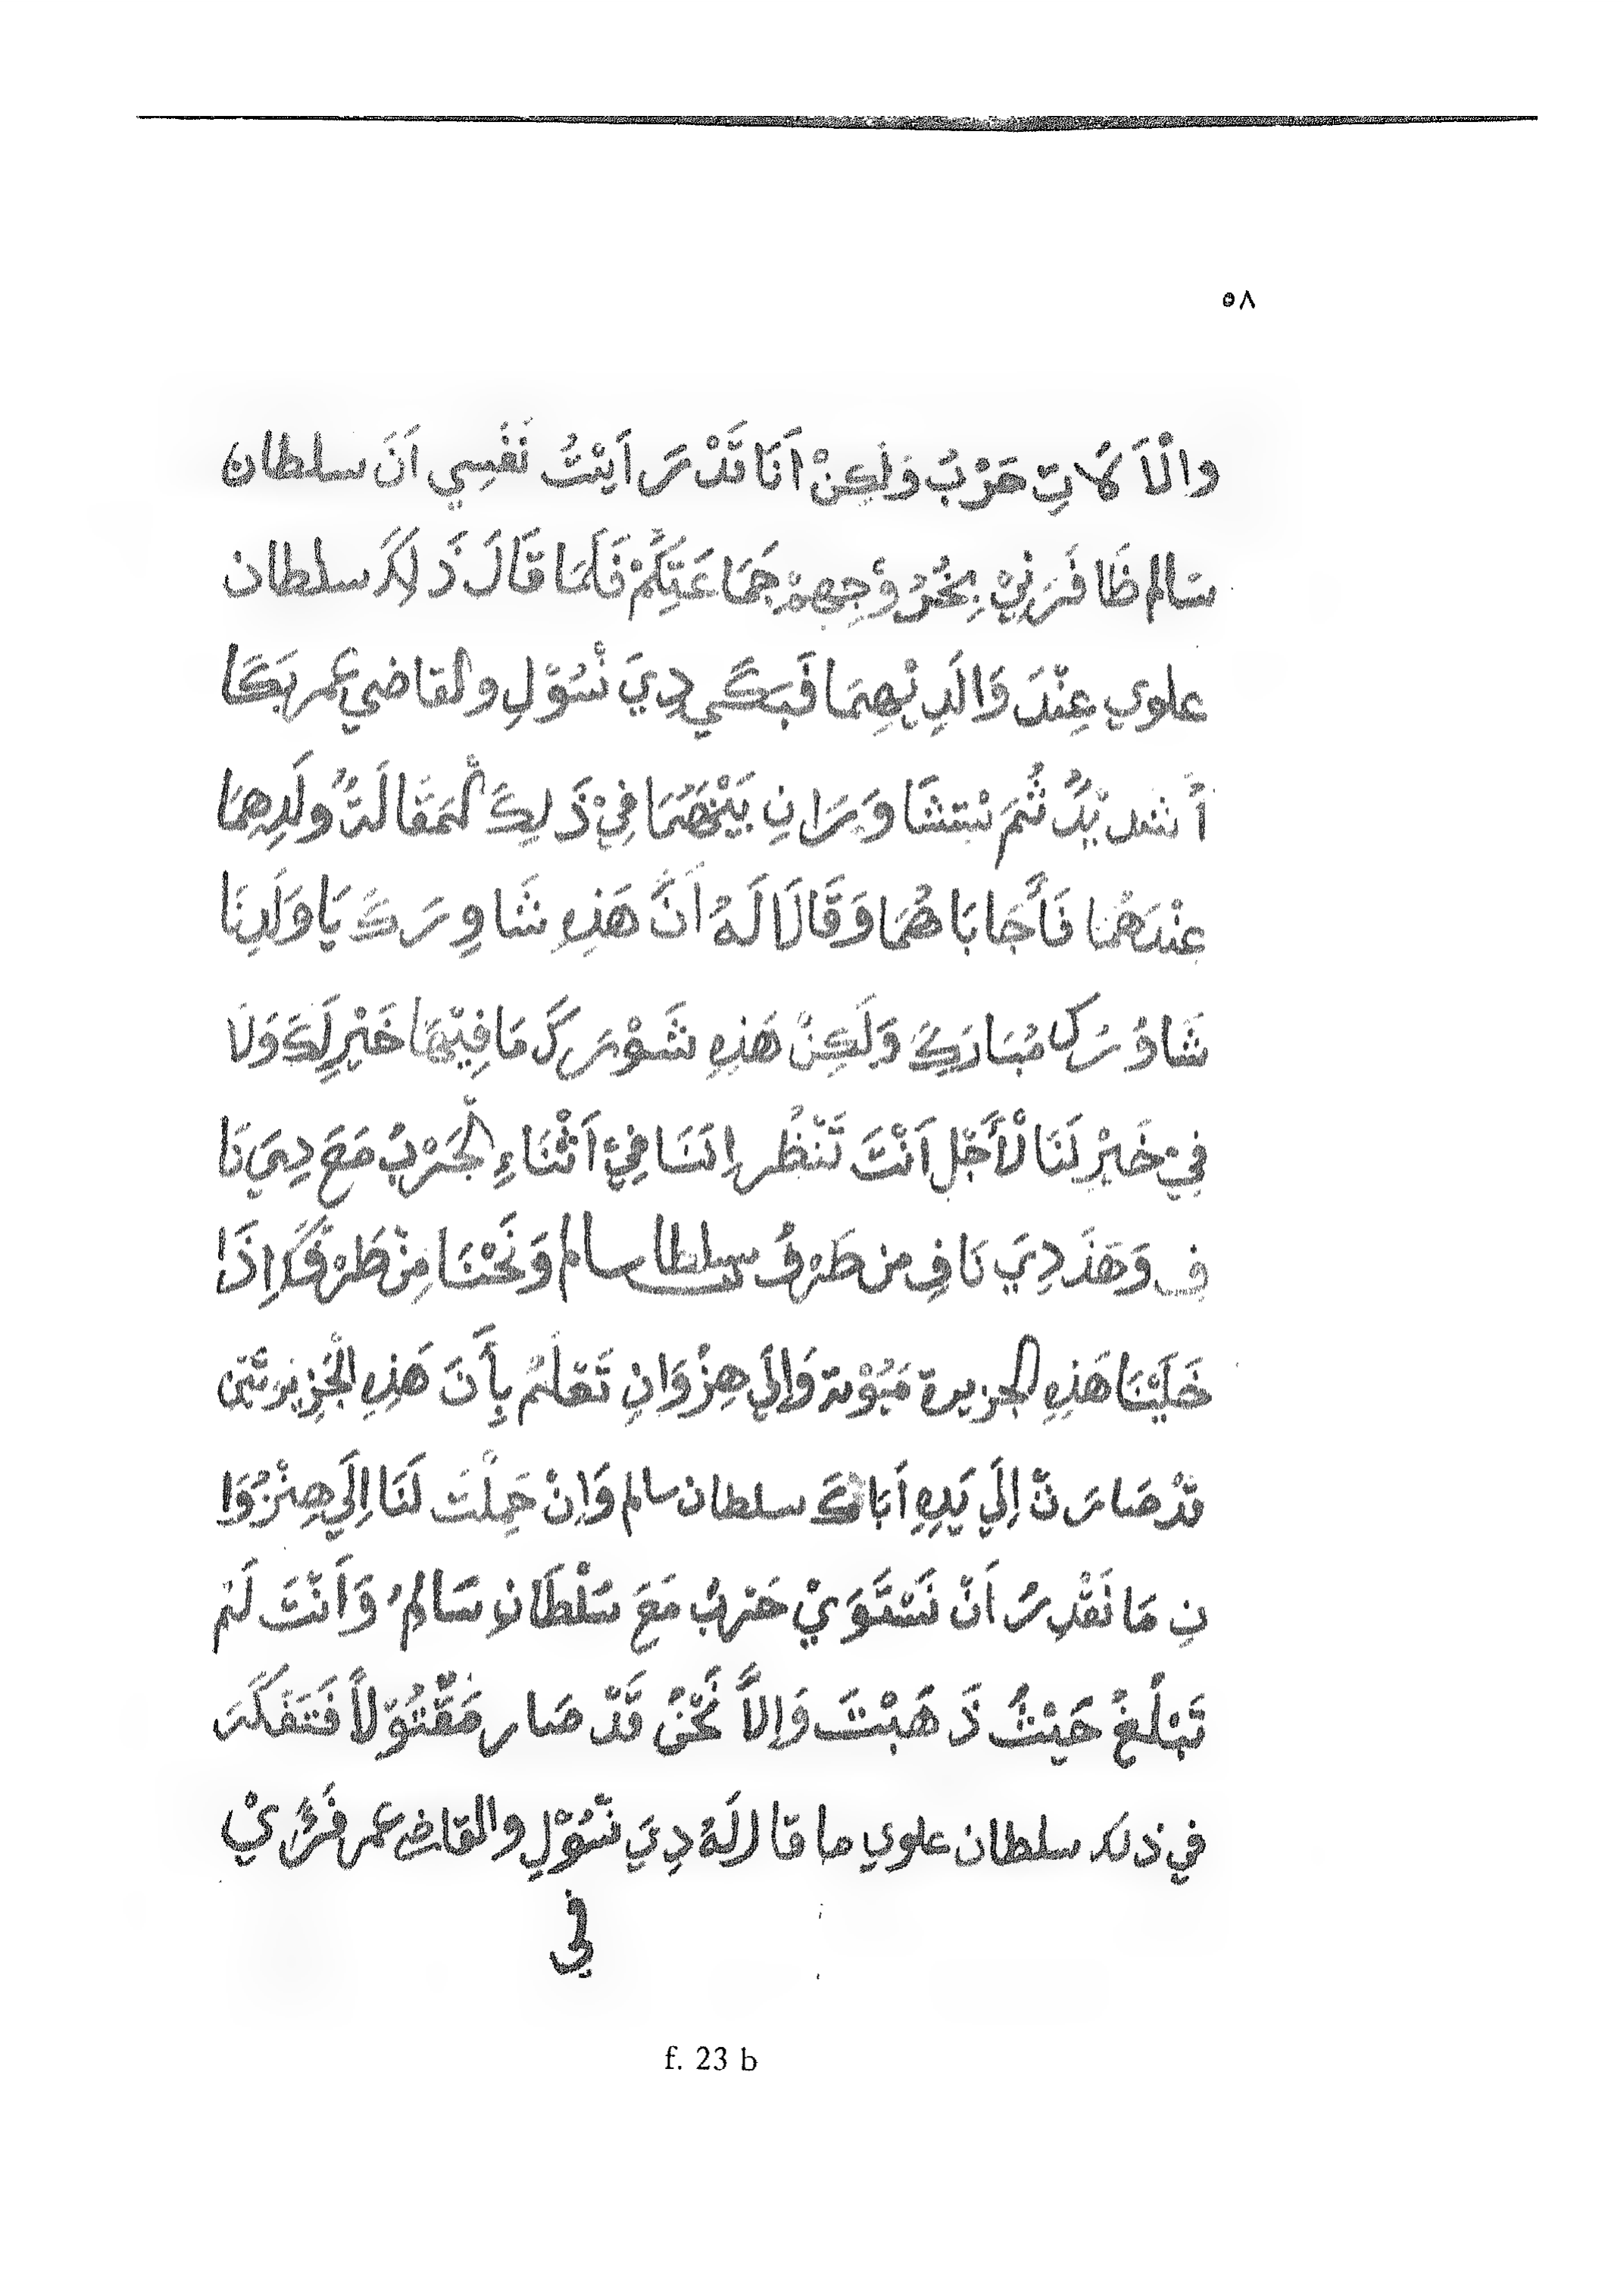 ٥٨
والْاَ لَاتِ حَرْبُ وَلٰكِنْ اَنَا قَدْ رَ اَيْتُ نَفْسِي اَنَ سلطان
سَالم ظَا فَرَنِيْ بِخُرُوْجِهِمْ جَمَا عَتِكُمْ فَلَمَا قَالَ ذَ لِكَ سلطان
علوي عِنْدَ وَالَدِ يْهِمَا فَبَكَي دِيَ نْسُوْلِ ولقاضي عمر بَكَا
اً شد يْدُ ثُمَ نْتشَا وَرَانِ بَيْنَهُمَا فِيْ ذَ لِكَ لْمَقَالَةُ ولَدِهِمَا
عِنْدَهُمَا فَأَجَابَا هُمَا وَقَالَا لَهُ اَنَّ هَذِهِ شَاوِرَكَ يَا وَلَدِنَا
شَاوُرَكَ مُبَارَكِ وَلَكِنْ هَذِهِ شَوْرَكَ مَا فِيْهَا خَيْرِلَكَ وَلَا
فِيْ خَيْرِ لَنَا لْأَجْلِ اَنْتَ تَنْظُر اِنَنَا فِيْ اَثْنَاءِ لْحَرْبُ مَعَ دِيَ نَا
فِ وَهَذَ دِيَ نَافِ من طَرْفُ سلطان سالم وَنَحْنَا مِنْ طَرْفَكَ اِذَا
خَلَيْنَا هَذِهِ الجزيرة مَيُوْتة وَاِلَي هِزْوَانِ تَعْلَمُ بِأَنَ هَذِهِ الْجَزِيْرَتَيْن
قَدْ صَارَ تْ اِلَي يَدِهِ اَبَاكَ سلطان سالم وَاِنْ حَمِلْتَ لَنَا اِلَي هِنْزُوَا
نِ مَا نَقْدِ رُ اَنْ نَسْتَوَيْ حَرْبُ مَعَ سُلْطَانِ سَالِمُ وَاَنْتَ لَمْ
تَبْلُغُ حَيْثُ ذَ هَبْتَ وَاِلاَّ نَحْنُ قَدْ صَا ر مَقْتُوْلاً فَتَفَكَرَ
في ذلك سلطان علوي ما قا ل لَهُ دِيَ نْسُوْلِ والقاضي عمر فَرَيْ
في
f. 23 b